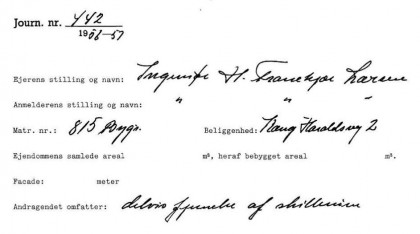 Journ. nr. 442
1956-57
Ejerens stilling og navn: H. Larsen
Anmelderens stilling og navn: " " "
Matr. nr.: 815 Bygn. Beliggenhed: Haraldsvej 2
Ejendommens samlede areal m², heraf bebygget areal m².
Facade: meter
Andragendet omfatter: delvis fjernelse af skillerum